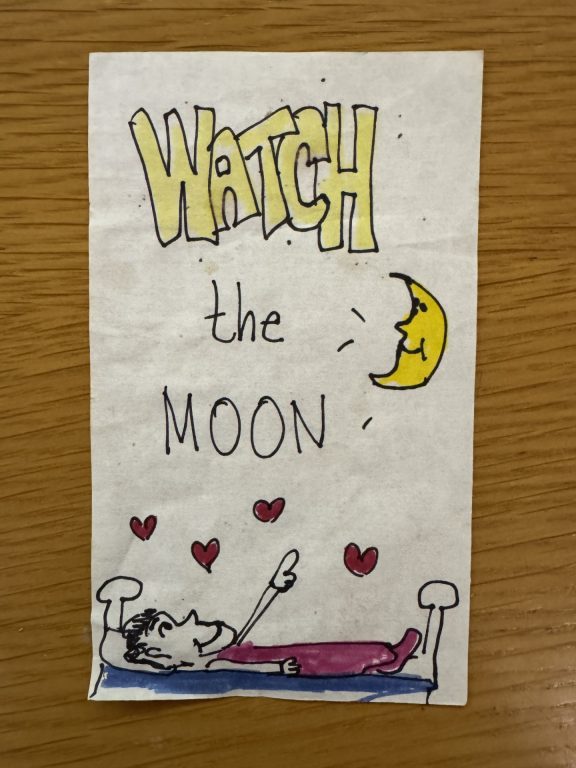 WATCH
the
MOON